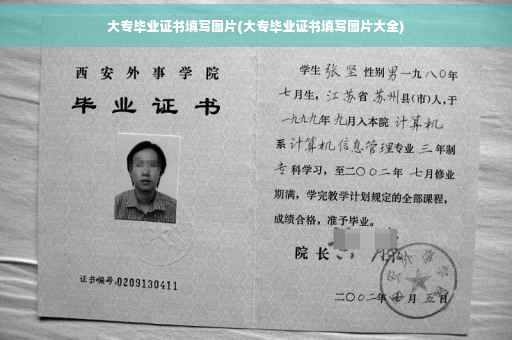 大专毕业证书填写图片(大专毕业证书填写图片大全)
西安外事学院
毕业证书
证书编号:0209130411
学生 张坚 性别 男 一九八〇年
七月生，江苏省 苏州县(市)人，于
一九九九年 九月入本院 计算机
系 计算机信息管理专业 三 年制
专科学习，至二〇〇二年 七月修业
期满，学完教学计划规定的全部课程，
成绩合格，准予毕业。
院长
二〇〇二年 月 五日